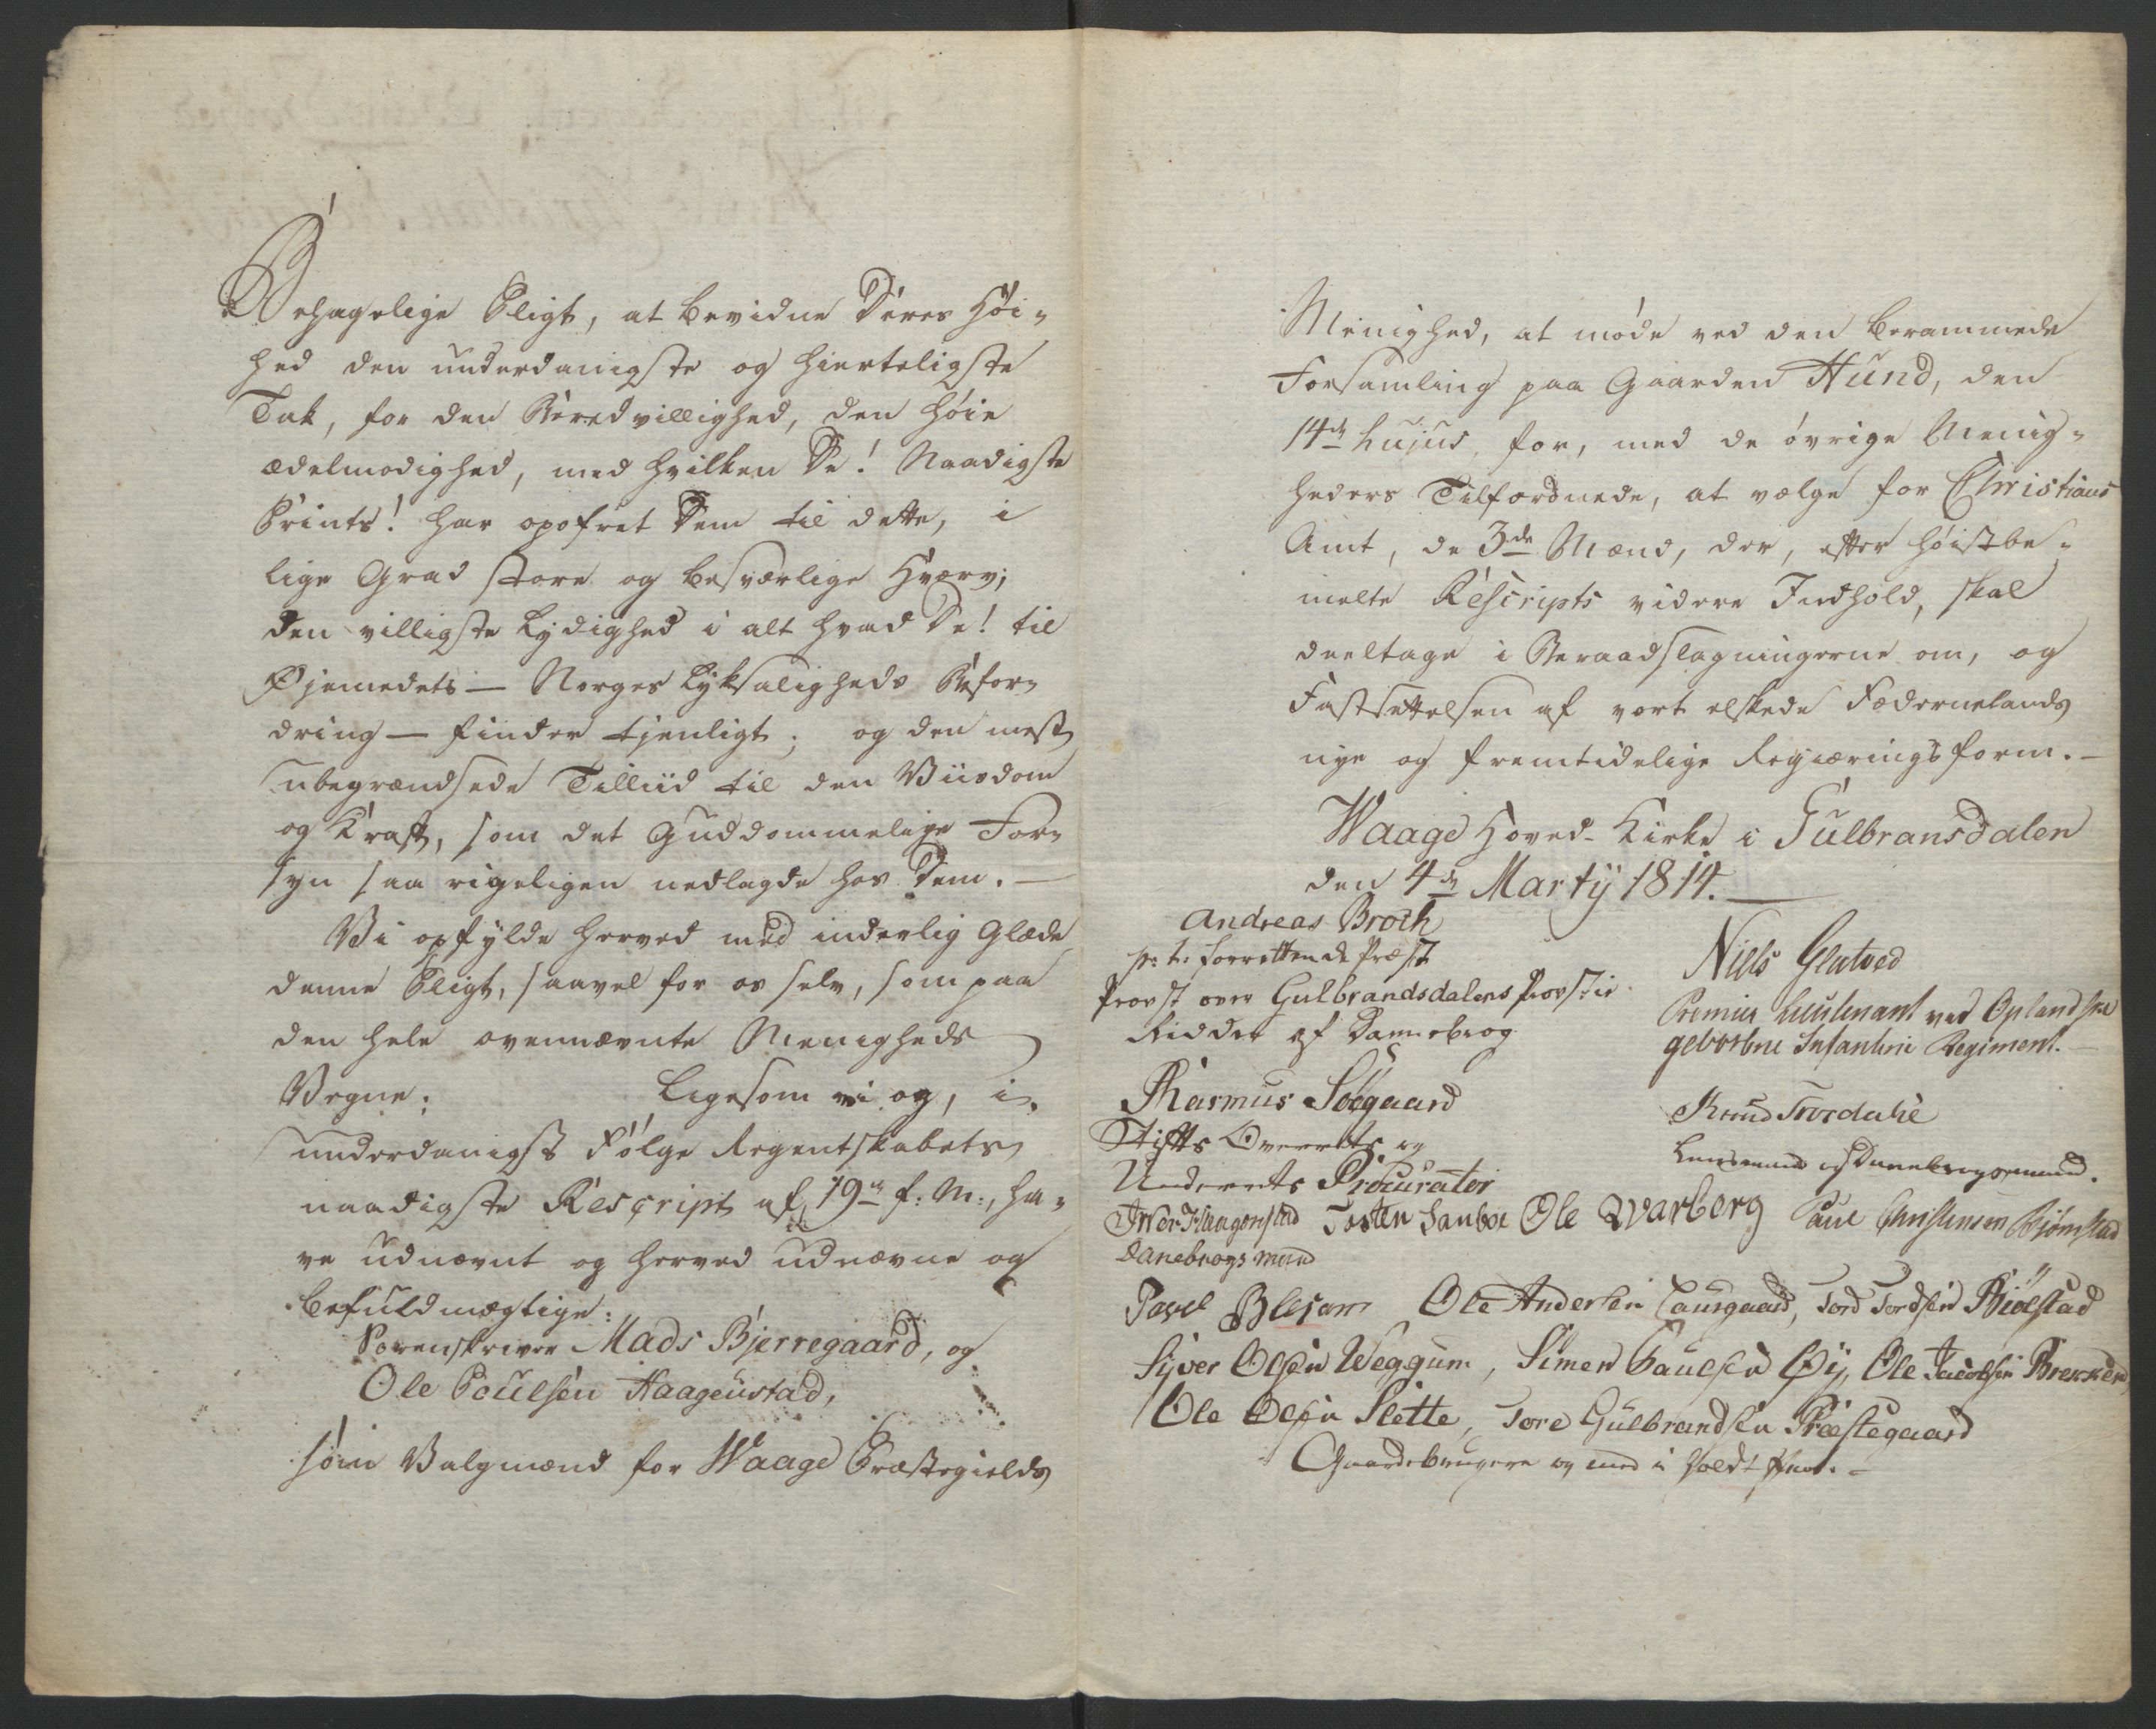 Behagelige Pligt, at bevidne Deres Høi-
hed den underdanigste og hierteligste
Tak, for den Beredvillighed, den høie
ædelmodighed, med hvilken De! Naadigste
Prints! har opofret Dem til dette, i
lige Grad store og besværlige Hværv;
den villigste Lydighed i alt hvad De! til
Øjemedets — Norges Lyksaligheds Befor-
dring — finder tjenligt; og den mest
ubegrændsede Tilliid til den Viisdom
og Kraft, som det Guddommelige For-
syn saa rigeligen nedlagde hos Dem. —
Vi opfylde herved med inderlig Glæde
denne Pligt, saavel for os selv, som paa
den hele ovennævnte Menigheds
Vegne; Ligesom vi og, i
underdanigst Følge Regentskabets
naadigste Rescript af 19de f: M:, ha-
ve udnævnt og herved udnævne og
befuldmægtige:
Sorenskriver Mads Bjerregaard, og
Ole Poulsen Haagenstad,
som Valgmænd for Waage Præstegields
Menighed, at møde ved den berammede
Forsamling paa Gaarden Hund, den
14de hujus, for, med de øvrige Menig-
heders Tilforordnede, at vælge for Christians
Amt, de 3de Mænd, der, efter høistbe-
melte Rescripts videre Indhold, skal
deeltage i Beraadslagningerne om, og
Fastsettelsen af vort elskede Fædernelands
nye og fremtidelige Regieringsform. —
Waage Hoved-Kirke i Gulbransdalen
den 4de Martÿ 1814. —
Andreas Broch
p: t: forrettende Præst
Provst over Gulbrandsdalens Provstie
Ridder af Dannebrog
Niels Glatved
Premier Lieutenant ved Oplandske
gevorbne Infanterie Regiment.
Rasmus Søegaard
Stifts Overrets og
Underrets Procurator
Knud Trosdahl
Lensmand og Dannebrogsmand.
Iver Haagenstad Josten Sanboe Ole Warberg Paul Christensen Bjørnstad
Danebrogsmand
Pavel Blesom Ole Andersen Laurgaard, Tord Tordsen Biølstad
Syver Olsen Weggum, Simen Paulsen Øÿ, Ole Jacobsen Brekken
Ole Olsen Slette, Tore Gulbrandsen Præstegaard
Gaardebrugere og med i holdt Pen. —